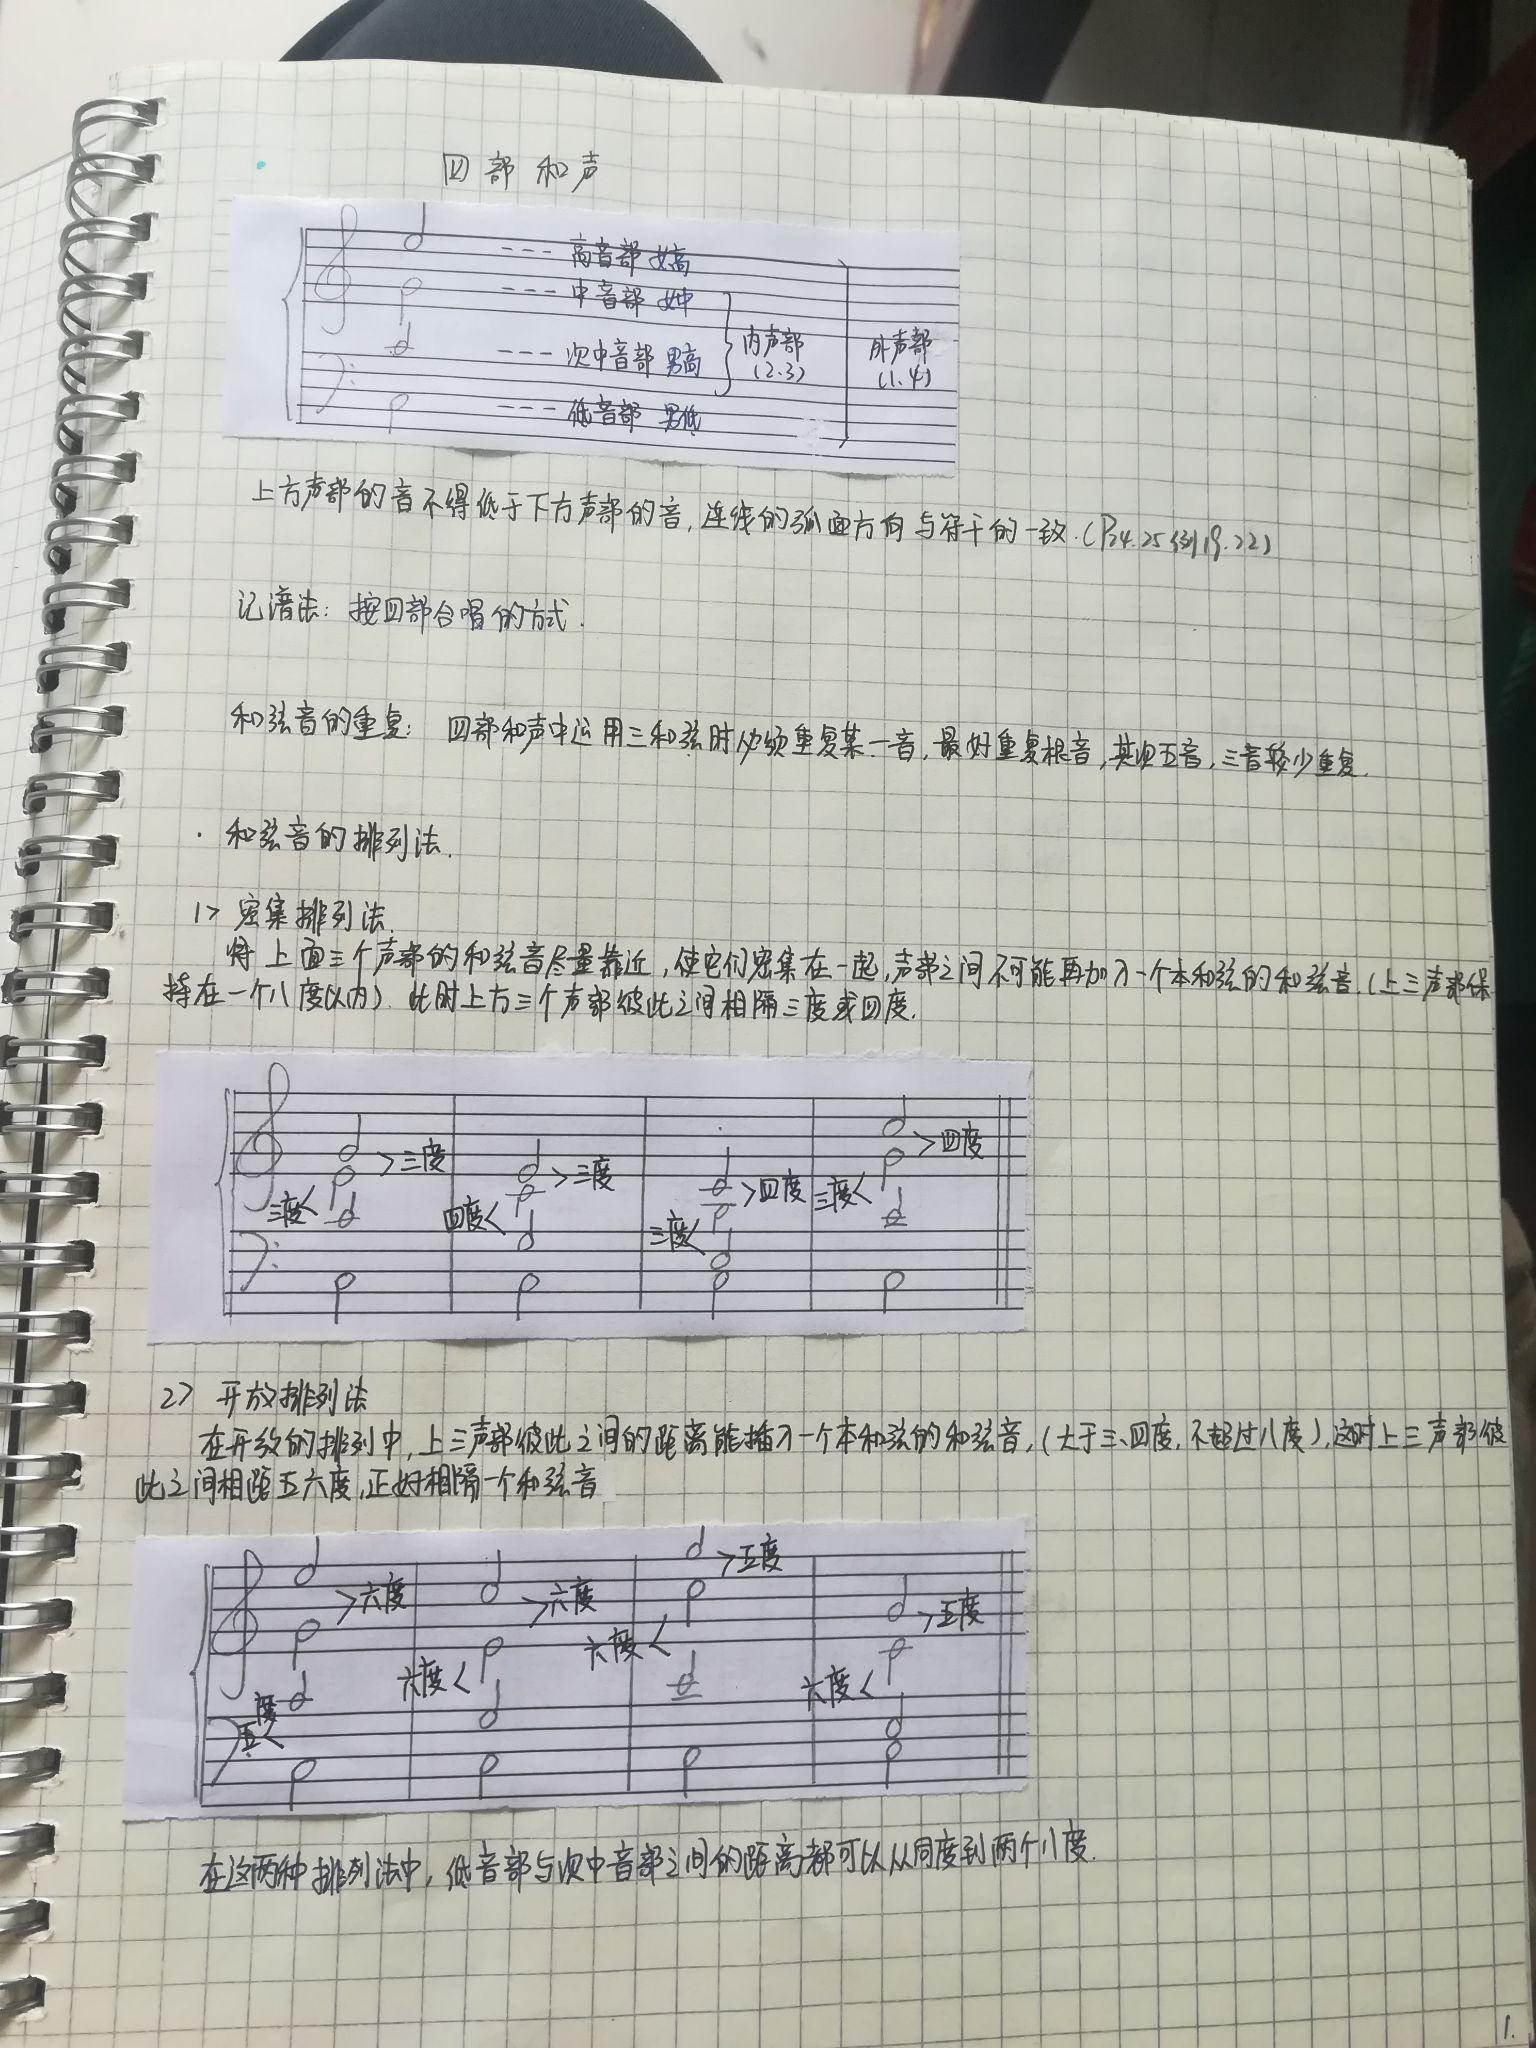 四部和声
--- 高音部 女高
--- 中音部 女中
内声部
(2.3)
外声部
(1.4)
--- 次中音部 男高
--- 低音部 男低
上方声部的音不得低于下方声部的音,连线的弧面方向与符干的一致.(P24.25例19.22)
记谱法:按四部合唱的方式.
和弦音的重复: 四部和声中运用三和弦时必须重复某一音,最好重复根音,其次五音,三音较少重复.
· 和弦音的排列法.
1> 密集排列法.
将上面三个声部的和弦音尽量靠近,使它们密集在一起,声部之间不可能再加入一个本和弦的和弦音.(上三声部保
持在一个八度以内).此时上方三个声部彼此之间相隔三度或四度.
>三度
三度<
>三度
四度<
>四度
三度<
>四度
三度<
2> 开放排列法
在开放的排列中,上三声部彼此之间的距离能插入一个本和弦的和弦音,(大于三、四度,不超过八度),这时上三声部彼
此之间相距五六度,正好相隔一个和弦音
>六度
五度<
>六度
六度<
>五度
六度<
>五度
六度<
在这两种排列法中,低音部与次中音部之间的距离都可以从同度到两个八度.
1.